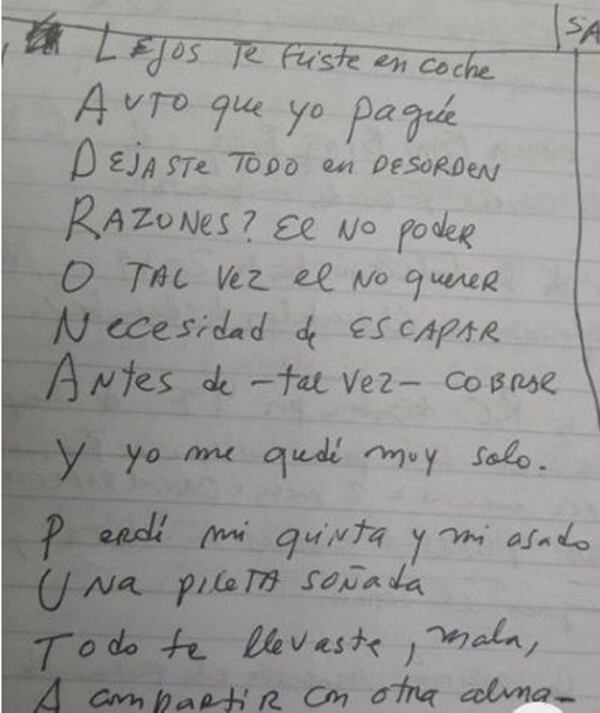 SA
LEJOS Te fuiste en coche
AUTO que yo paguíe
DEJASTE TODO en DESORDEN
RAZONES? El NO poder
O TAL VEZ el NO querer
Necesidad de ESCAPAR
ANtes de - tal vez - COBRAR
Y yo me quedé muy solo.
Perdí mi quinta y mi asado
UNA PILETA SOÑADA
Todo te llevaste, mala,
A compartir con otra alma-